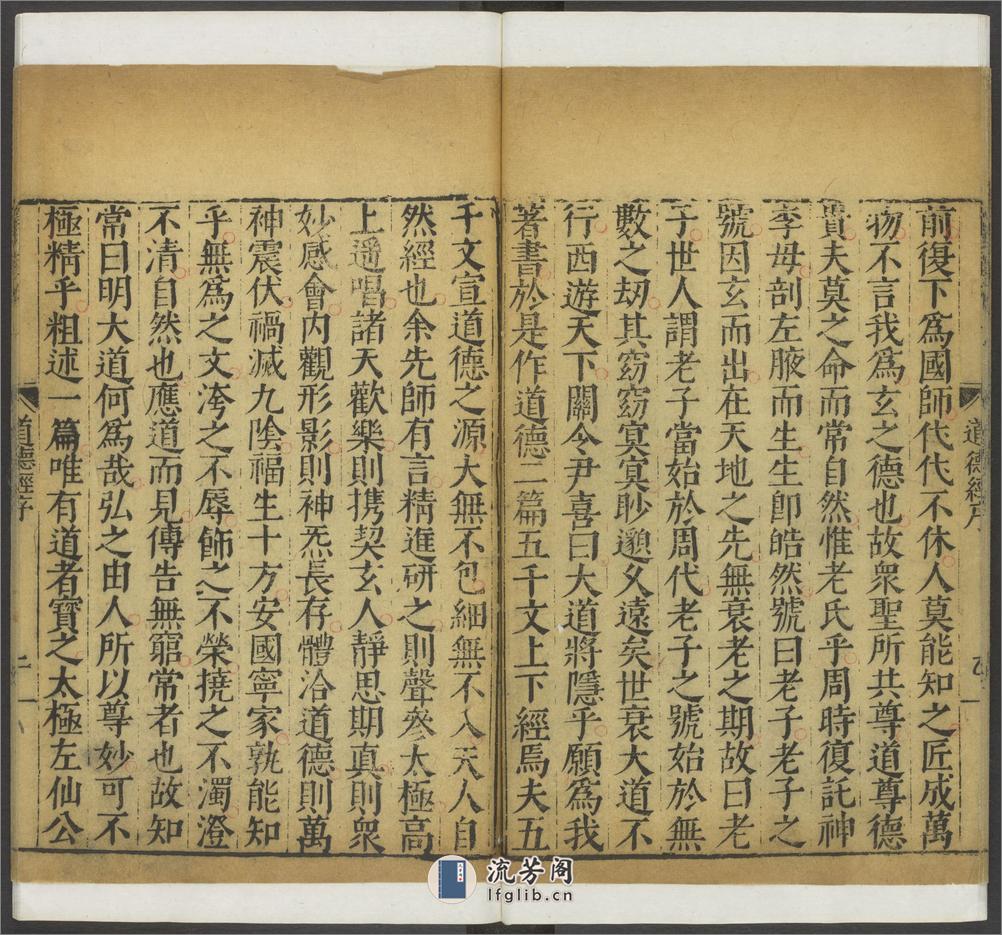 前復下爲國師代代不休人莫能知之匠成萬
物不言我爲玄之德也故衆聖所共尊道尊德
貴夫莫之命而常自然惟老氏乎周時復託神
李母剖左腋而生生即皓然號曰老子老子之
號因玄而出在天地之先無衰老之期故曰老
子世人謂老子當始於周代老子之號始於無
數之刧其窈窈冥冥眇邈久遠矣世衰大道不
行西遊天下關令尹喜曰大道將隱乎願爲我
著書於是作道德二篇五千文上下經焉夫五
千文宣道德之源大無不包細無不入天人自
然經也余先師有言精進研之則聲參太極高
上遥唱諸天歡樂則携契玄人靜思期真則衆
妙感會内觀形影則神炁長存體洽道德則萬
神震伏禍滅九陰福生十方安國寧家孰能知
乎無爲之文洿之不辱飾之不榮撓之不濁澄
不清自然也應道而見傳告無窮常者也故知
常曰明大道何爲哉弘之由人所以尊妙可不
極精乎粗述一篇唯有道者寶之太極左仙公
道德經序
流芳阁
lfglib.cn